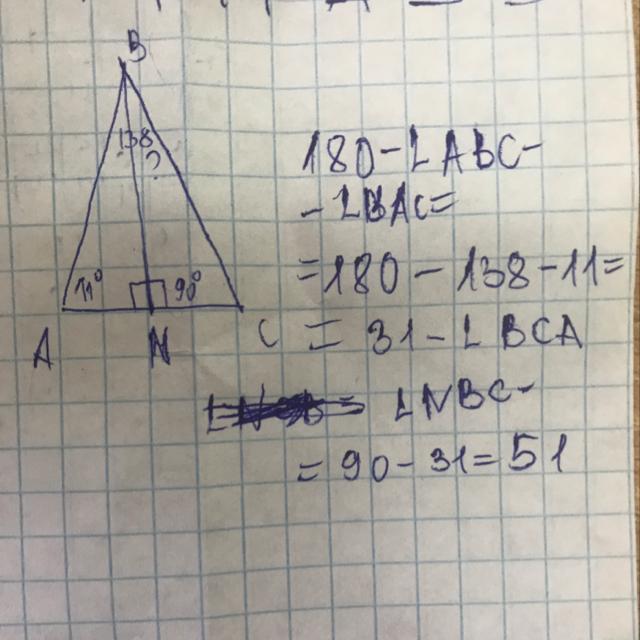 B
138
?
11°
90°
A
N
C
180-∠ABC-
-∠BAC=
=180-138-11=
=31-∠BCA
∠NBC-
=90-31=51